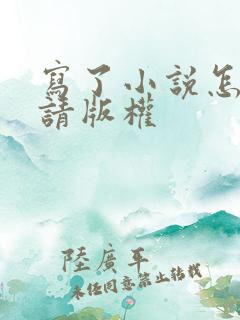 寫了小説怎
請版權
陸廣平
未经同意禁止转载